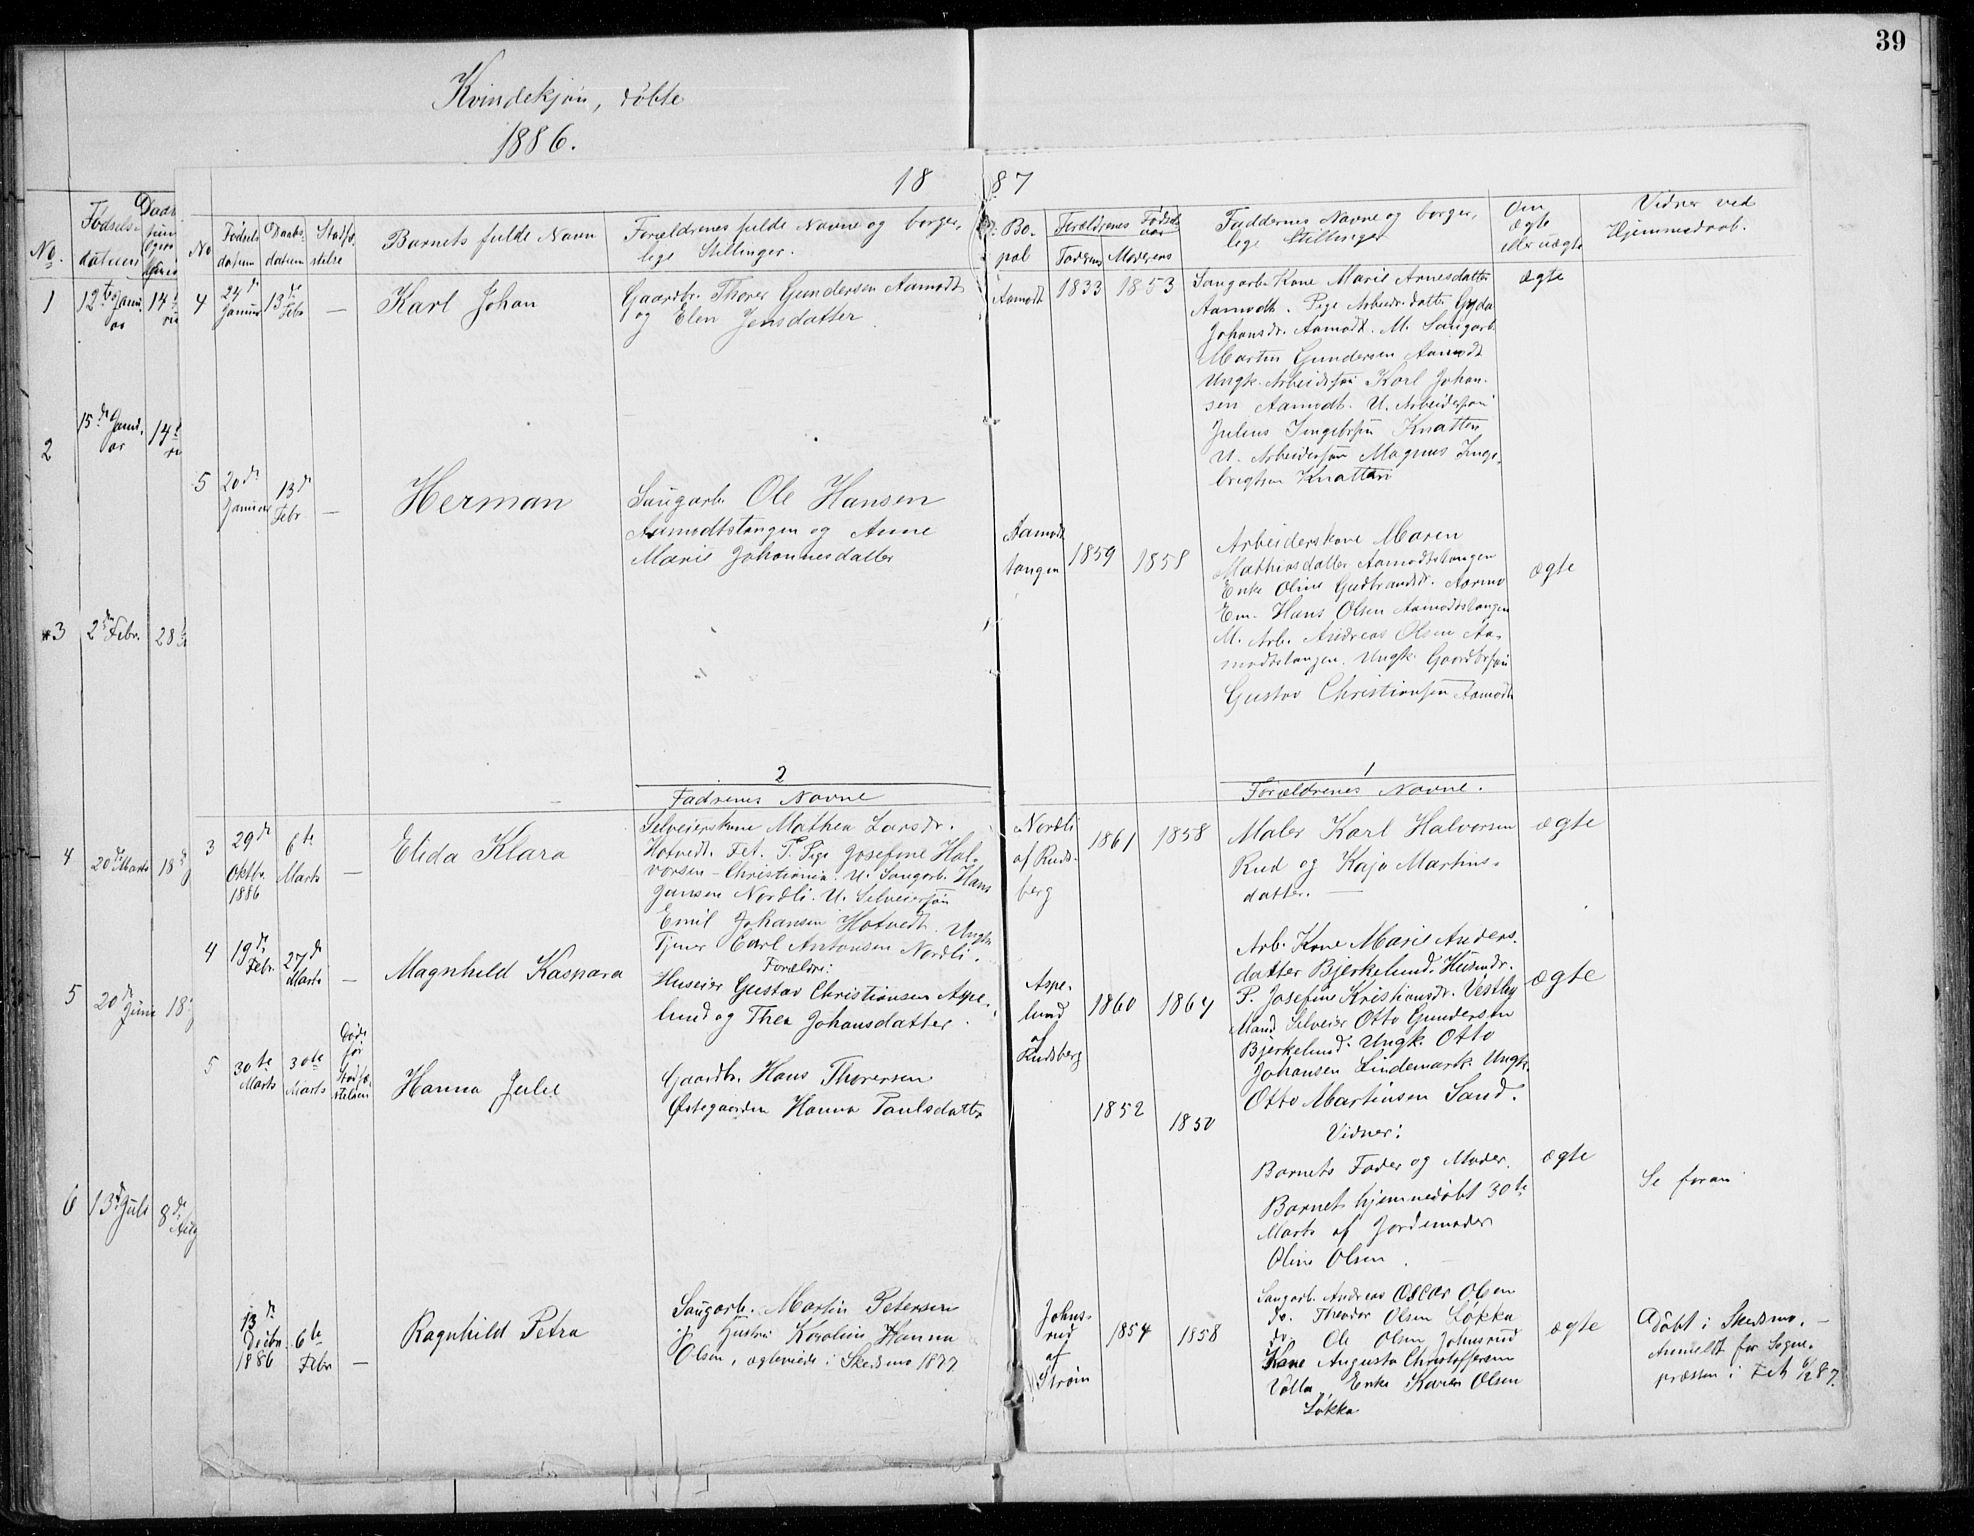 39
Kvindekjøn, døbte
1886.
18 87
No.
Fødsels-
datum
1
12te Janu-
ar
14
2
15de Janu-
ar
14
3
2den Febr.
28
4
20de Marts
18
5
20de Juni
18
6
13de Juli
8de Aug
No
Fødsels
datum
Daabs-
datum
Stadfæ-
stelse
Barnets fulde Navn
Forældrenes fulde Navne og borger-
lige Stillinger.
Bo-
pæl
Forældrenes Fødsels-
aar
Faderens Moderens
Faddernes Navne og borger-
lige Stillinger
Om
ægte
eller uægte
Vidner ved
Hjemmedaab.
4
24de
Januar
13de
Febr
—
Karl Johan
Gaardbr. Thorer Gundersen Aamodt
og Elen Jensdatter
Aamodt
1833
1853
Saugarb. Kone Marie Arnesdatter
Aamodt. Pige Arbeid. datter Gyda
Johansdr. Aamodt. M. Saugarb.
Martin Gundersen Aamodt
Ungk. Arbeidssøn Karl Johan-
sen Aamodt. U. Arbeidersøn
Julius Ingebrsen Knatten
U. Arbeidersøn Magnus Inge-
brigtsen Knatten
ægte
5
20de
Januar
13de
Febr
—
Herman
Saugarb. Ole Hansen
Aamodtstangen og Anne
Marie Johannesdatter
Aamodt
tangen
1859
1858
Arbeiderskone Maren
Mathiasdatter Aamodtstangen
Enke Oline Gudbrandsdr.
Em. Hans Olsen Aamodtstangen
M. Arb. Andreas Olsen Aa-
modtstangen. Ungk. Gaardbrsøn
Gustav Christiansen Aamodt
ægte
2
Fadrenes Navne
1
Forældrenes Navne.
3
29de
Oktbr.
1886
6te
Marts
—
Elida Klara
Selveierskone Mathea Larsdr.
Hotvedt. Fet. T. Pige Josefine Hal-
vorsen - Christiania. U. Saugarb. Hans
Jansen Nordli. U. Selveiersøn
Emil Johansen Hotvedt. Ungk.
Tjener Carl Antonsen Nordli.
Nordli
af Ruds-
berg
1861
1858
Maler Karl Halvorsen
Rud og Kaja Martins-
datter.
ægte
4
19de
Febr.
27de
Marts
—
Magnhild Kaspara
Forældre:
Huseier Gustav Christiansen Aspe-
lund og Thea Johansdatter.
Aspe-
lund
af
Rudsberg
1860
1864
Arb. Kone Marie Anders-
datter Bjerkelund. Husmdr.
P. Josefine Kristiansdr. Vestby
Mand Selveier Otto Gundersen
Bjerkelund. Ungk. Otto
Johansen Lindemark. Ungk.
Otto Martinsen Sand.
ægte
5
30te
Marts
30te
Marts
Død
før
Stadfæ-
stelsen
Hanna Julie
Gaardbr. Hans Thorersen
Østegaarden Hanna Paulsdatter
1852
1850
Vidner:
Barnets Fader og Moder.
Barnet hjemmedøbt 30te
Marts af Jordemoder
Oline Olsen.
ægte
Se foran
13de
Decbr.
1886
6te
Febr
—
Ragnhild Petra
Saugarb. Martin Petersen
og Hustru Karoline Hanna
Olsen, ægteviede i Skedsmo 1877
Johns-
rud
af
Strøm
1854
1858
Saugarb. Andreas Oscar Olsen
do. Theodor Olsen Løkka
do. Ole Olsen Johnsrud
Kone Augusta Christoffersen
Volla, Enke Karen Olsen
Løkka
ægte
Døbt i Skedsmo. —
Anmeldt for Sogne-
præsten i Fet 6/2 87.